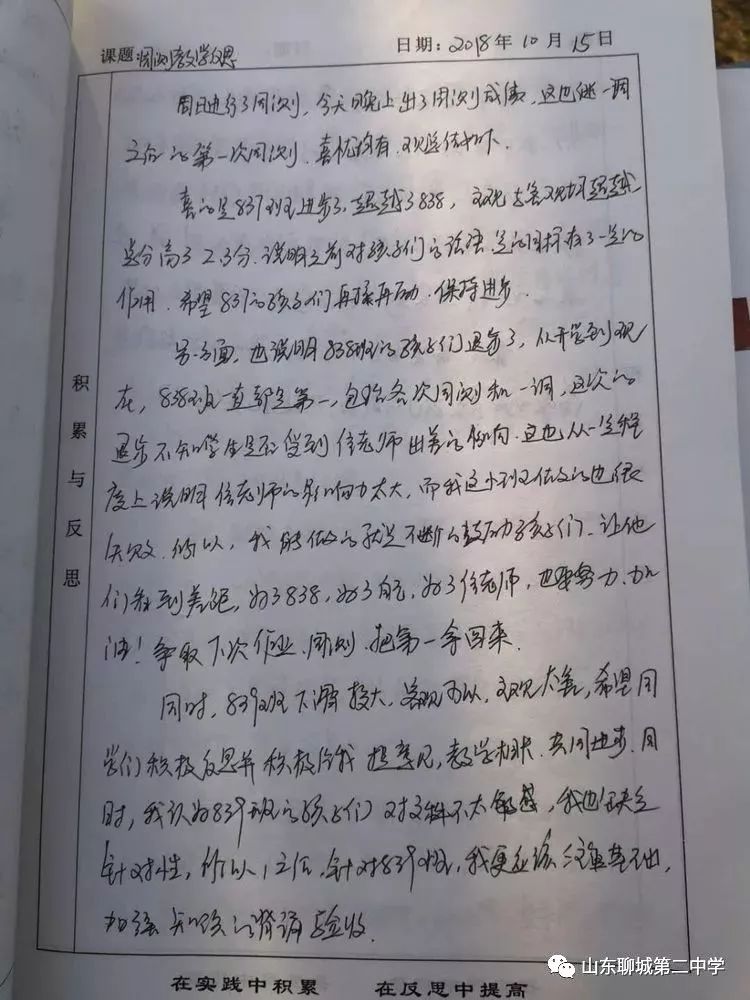 课题:周测教学反思
日期:2018年10月15日
周日进行了周测,今天晚上出了周测成绩,这也继一调
之后的第一次周测,喜忧均有,现总结如下.
喜的是837班进步了,超越了838,主观与客观均超越
总分高了2.3分.说明之前对孩子们的谈话定的目标有了一定的
作用.希望837的孩子们再接再励.保持进步.
另一方面,也说明838班的孩子们退步了,从开学到现
在,838班一直都是第一,包括各次周测和一调,这次的
退步不知学生是否受到任老师出差的影响.这也从一定程
度上说明任老师的影响力太大,而我这个班做的也很
失败.所以,我能做的就是不断的鼓励孩子们.让他
们看到差距,为了838,为了自己,为了任老师,也要努力,加
油!争取下次作业.周测.把第一拿回来.
同时,839班下滑较大,客观可以,主观太差,希望同
学们积极反思并积极给我提意见,教学相长.共同进步.同
时,我认为839班的孩子们对文科不太敏感,我也缺乏
针对性,所以,之后,针对839班,我更应该注重基础,
加强知识的背诵与验收.
积累与反思
在实践中积累 在反思中提高
山东聊城第二中学